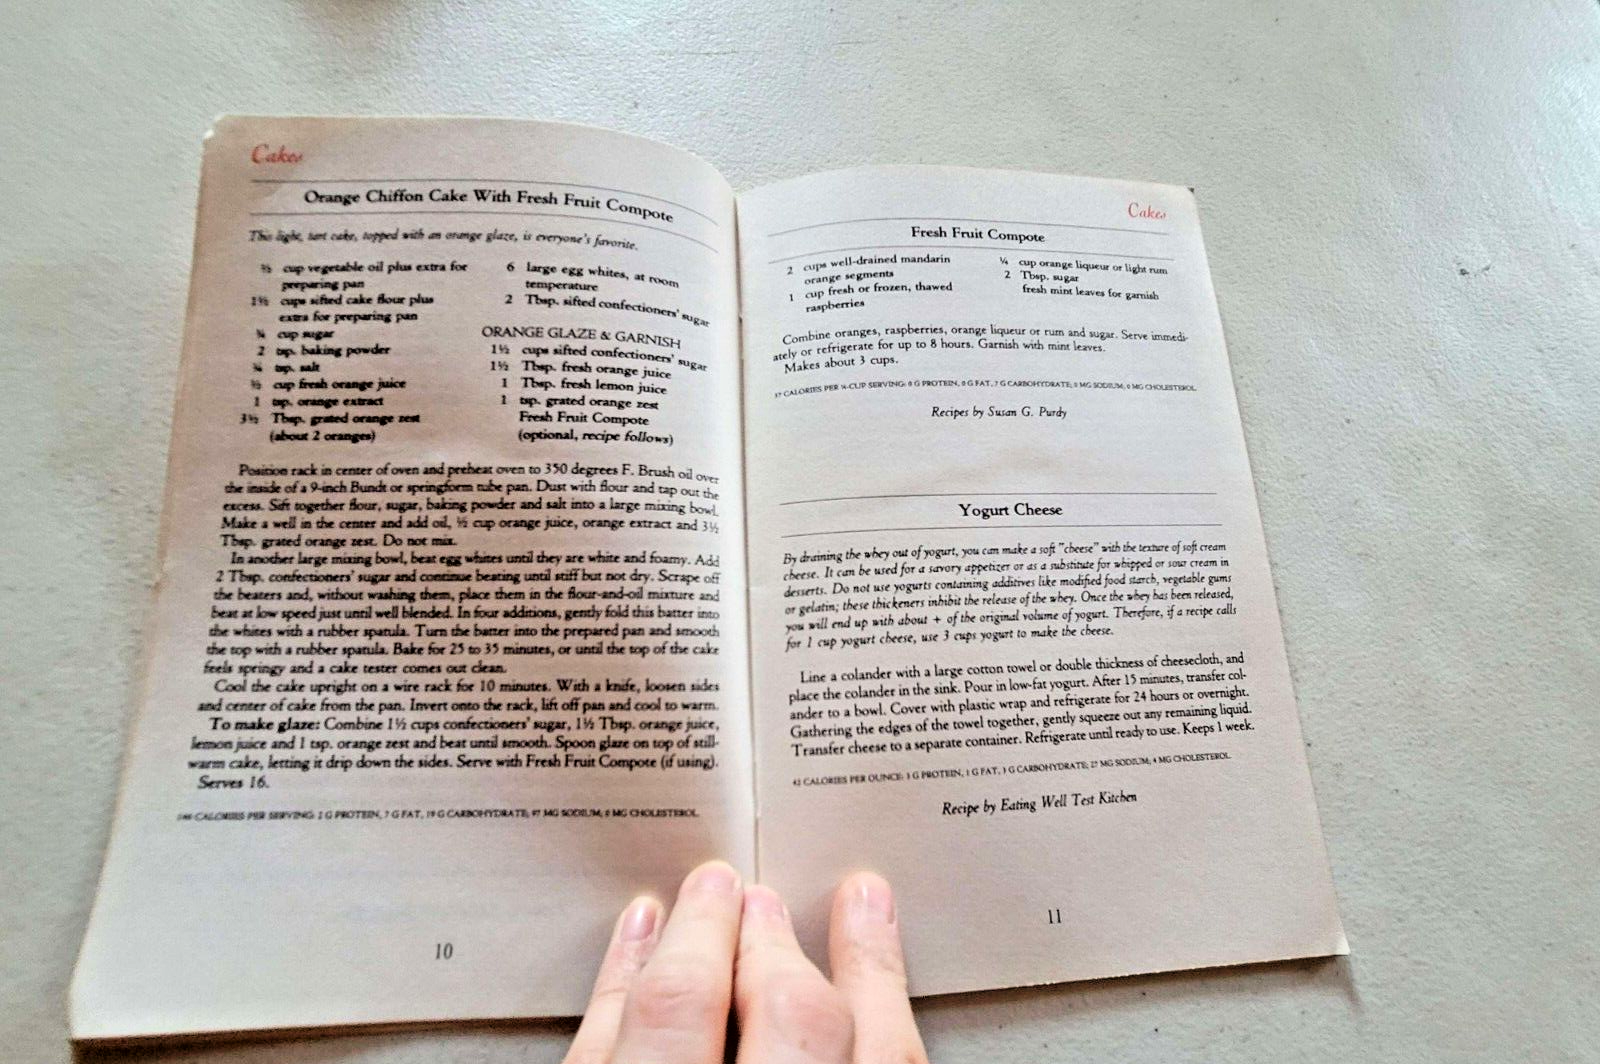 Cakes
Orange Chiffon Cake With Fresh Fruit Compote
This light, tart cake, topped with an orange glaze, is everyone's favorite.
cup vegetable oil plus extra for
preparing pan
1½ cups sifted cake flour plus
extra for preparing pan
¾ cup sugar
2 tsp. baking powder
¾ tsp. salt
½ cup fresh orange juice
1 tsp. orange extract
3½ Tbsp. grated orange zest
(about 2 oranges)
6 large egg whites, at room
temperature
2 Tbsp. sifted confectioners' sugar
ORANGE GLAZE & GARNISH
1½ cups sifted confectioners' sugar
1½ Tbsp. fresh orange juice
1 Tbsp. fresh lemon juice
1 tsp. grated orange zest
Fresh Fruit Compote
(optional, recipe follows)
Position rack in center of oven and preheat oven to 350 degrees F. Brush oil over
the inside of a 9-inch Bundt or springform tube pan. Dust with flour and tap out the
excess. Sift together flour, sugar, baking powder and salt into a large mixing bowl.
Make a well in the center and add oil, ½ cup orange juice, orange extract and 3½
Tbsp. grated orange zest. Do not mix.
In another large mixing bowl, beat egg whites until they are white and foamy. Add
2 Tbsp. confectioners' sugar and continue beating until stiff but not dry. Scrape off
the beaters and, without washing them, place them in the flour-and-oil mixture and
beat at low speed just until well blended. In four additions, gently fold this batter into
the whites with a rubber spatula. Turn the batter into the prepared pan and smooth
the top with a rubber spatula. Bake for 25 to 35 minutes, or until the top of the cake
feels springy and a cake tester comes out clean.
Cool the cake upright on a wire rack for 10 minutes. With a knife, loosen sides
and center of cake from the pan. Invert onto the rack, lift off pan and cool to warm.
To make glaze: Combine 1½ cups confectioners' sugar, 1½ Tbsp. orange juice,
lemon juice and 1 tsp. orange zest and beat until smooth. Spoon glaze on top of still-
warm cake, letting it drip down the sides. Serve with Fresh Fruit Compote (if using).
Serves 16.
CALORIES PER SERVING: 2 G PROTEIN, 7 G FAT, 19 G CARBOHYDRATE; 97 MG SODIUM; 0 MG CHOLESTEROL.
10
Cakes
Fresh Fruit Compote
2 cups well-drained mandarin
orange segments
1 cup fresh or frozen, thawed
raspberries
¼ cup orange liqueur or light rum
2 Tbsp. sugar
fresh mint leaves for garnish
Combine oranges, raspberries, orange liqueur or rum and sugar. Serve immedi-
ately or refrigerate for up to 8 hours. Garnish with mint leaves.
Makes about 3 cups.
37 CALORIES PER ¼-CUP SERVING: 0 G PROTEIN, 0 G FAT, 7 G CARBOHYDRATE; 0 MG SODIUM, 0 MG CHOLESTEROL.
Recipes by Susan G. Purdy
Yogurt Cheese
By draining the whey out of yogurt, you can make a soft "cheese" with the texture of soft cream
cheese. It can be used for a savory appetizer or as a substitute for whipped or sour cream in
desserts. Do not use yogurts containing additives like modified food starch, vegetable gums
or gelatin; these thickeners inhibit the release of the whey. Once the whey has been released,
you will end up with about + of the original volume of yogurt. Therefore, if a recipe calls
for 1 cup yogurt cheese, use 3 cups yogurt to make the cheese.
Line a colander with a large cotton towel or double thickness of cheesecloth, and
place the colander in the sink. Pour in low-fat yogurt. After 15 minutes, transfer col-
ander to a bowl. Cover with plastic wrap and refrigerate for 24 hours or overnight.
Gathering the edges of the towel together, gently squeeze out any remaining liquid.
Transfer cheese to a separate container. Refrigerate until ready to use. Keeps 1 week.
42 CALORIES PER OUNCE: 3 G PROTEIN, 1 G FAT, 3 G CARBOHYDRATE; 27 MG SODIUM; 4 MG CHOLESTEROL.
Recipe by Eating Well Test Kitchen
11